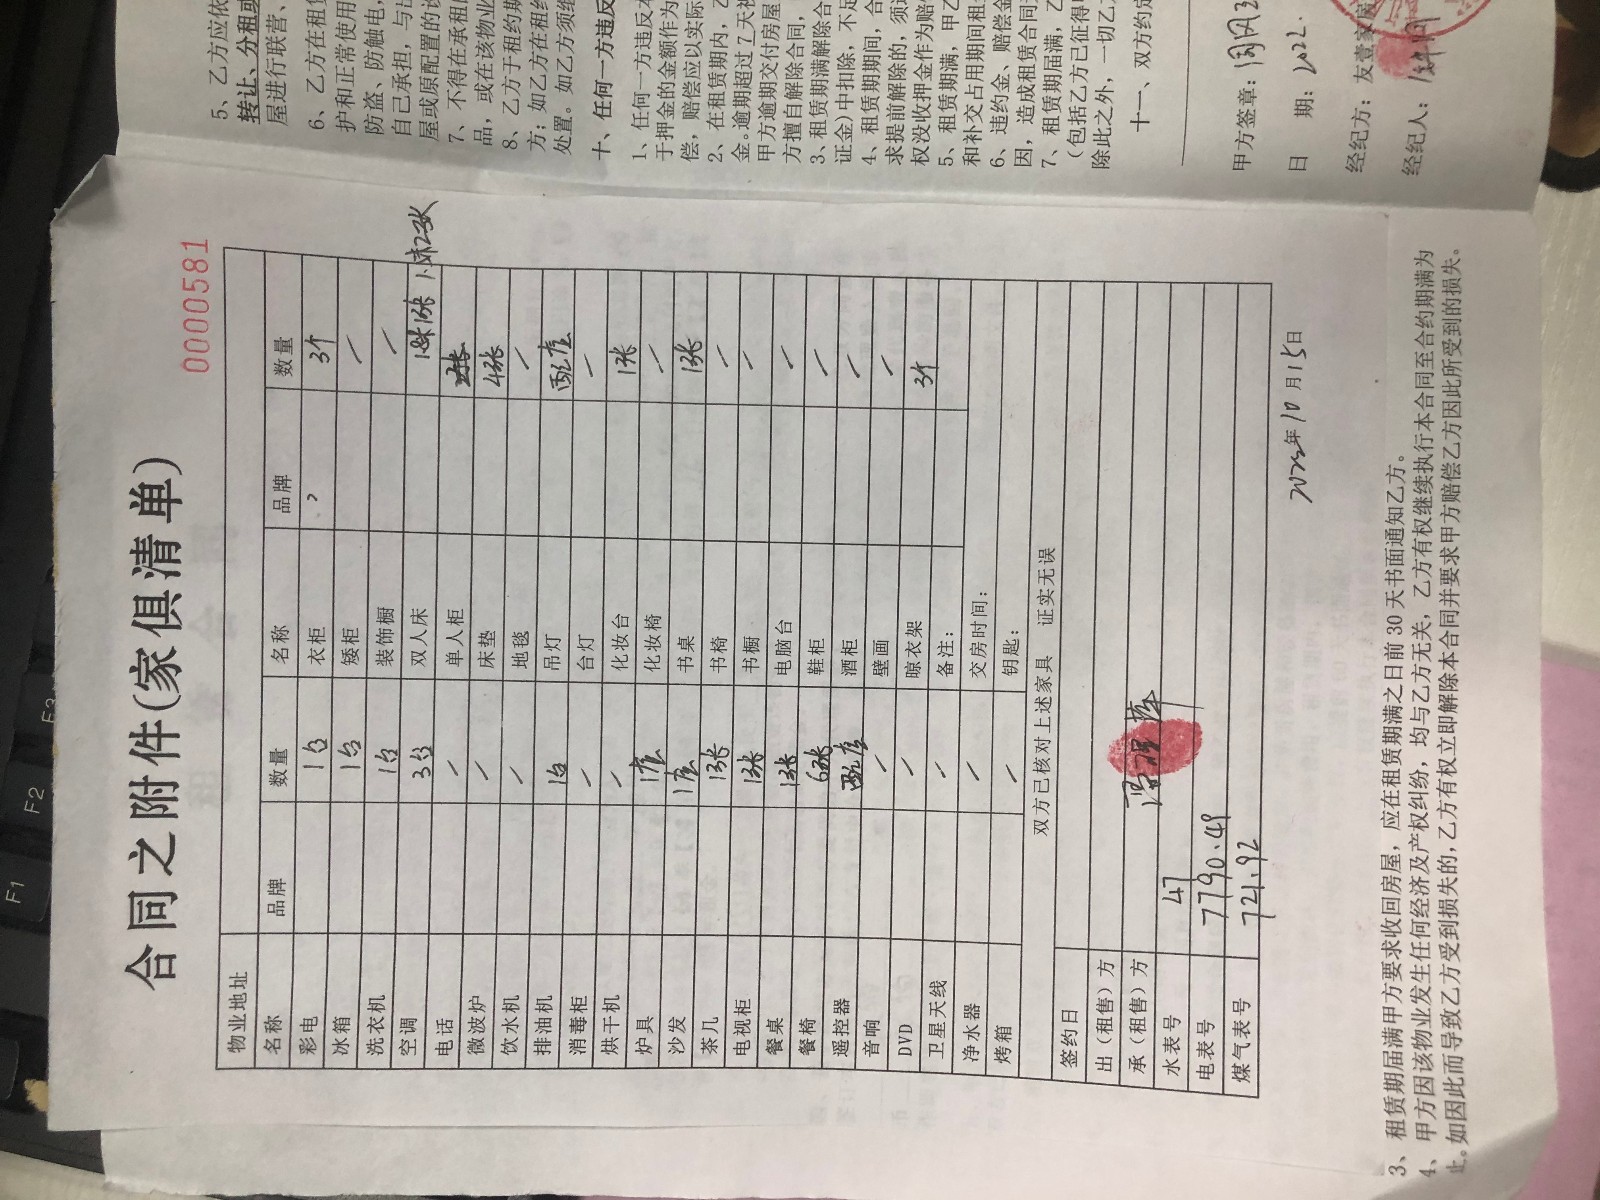 0000581
合同之附件(家俱清单)
物业地址
名称 品牌 数量 名称 品牌 数量
彩电 1台 衣柜 3个
冰箱 1台 矮柜 /
洗衣机 1台 装饰橱 /
空调 3台 双人床 1.8米1张 1.5米2张
电话 / 单人柜
微波炉 / 床垫 4张
饮水机 / 地毯 /
排油机 1台 吊灯 配座
消毒柜 / 台灯 /
烘干机 / 化妆台 1张
炉具 1座 化妆椅 /
沙发 1座 书桌 1张
茶几 1张 书椅 /
电视柜 1张 书橱 /
餐桌 1张 电脑台 /
餐椅 6张 鞋柜 /
遥控器 配座 酒柜 /
音响 / 壁画 /
DVD / 晾衣架 3个
卫星天线 / 备注:
净水器 / 交房时间:
烤箱 / 钥匙:
双方已核对上述家具 证实无误
签约日
出（租售）方
承（租售）方
水表号 47
电表号 7790.49
煤气表号 721.92
2022年10月15日
3、租赁期届满甲方要求收回房屋，应在租赁期满之日前30天书面通知乙方。
4、甲方因该物业发生任何经济及产权纠纷，均与乙方无关，乙方有权继续执行本合同至合约期满为
止。如因此而导致乙方受到损失的，乙方有权立即解除本合同并要求甲方赔偿乙方因此所受到的损失。
5、乙方应依
转让、分租或
屋进行联营、
6、乙方在租赁
护和正常使用
防盗、防触电，
自己承担，与甲
屋或原配置的设
7、不得在承租
品，或在该物业
8、乙方于租约期
方；如乙方在租约
处置。如乙方须继
十、任何一方违反
1、任何一方违反本
于押金的金额作为
偿，赔偿应以实际
2、在租赁期内，乙
金。逾期超过7天视
甲方逾期交付房屋
方擅自解除合同，
3、租赁期满解除合
证金）中扣除，不足
4、租赁期期间，合
求提前解除的，须
权没收押金作为赔
5、租赁期满，甲乙
和补交占用期间租
6、违约金、赔偿金
因，造成租赁合同
7、租赁期届满，乙
（包括乙方已征得
除此之外，一切乙
十一、双方约定
甲方签章:
日 期: 2022.
经纪方: 友壹家房
经纪人:
F1
F2
F3